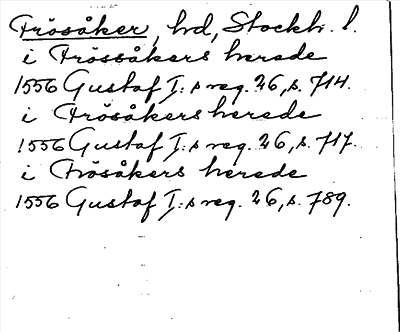 Frösåker, hd, Stockh. l.
i Frössåkers herade
1556 Gustaf I:s reg. 26, s. 714.
i Frösåkers herade
1556 Gustaf I:s reg. 26, s. 717.
i Frösåkers herade
1556 Gustaf I:s reg. 26, s. 789.